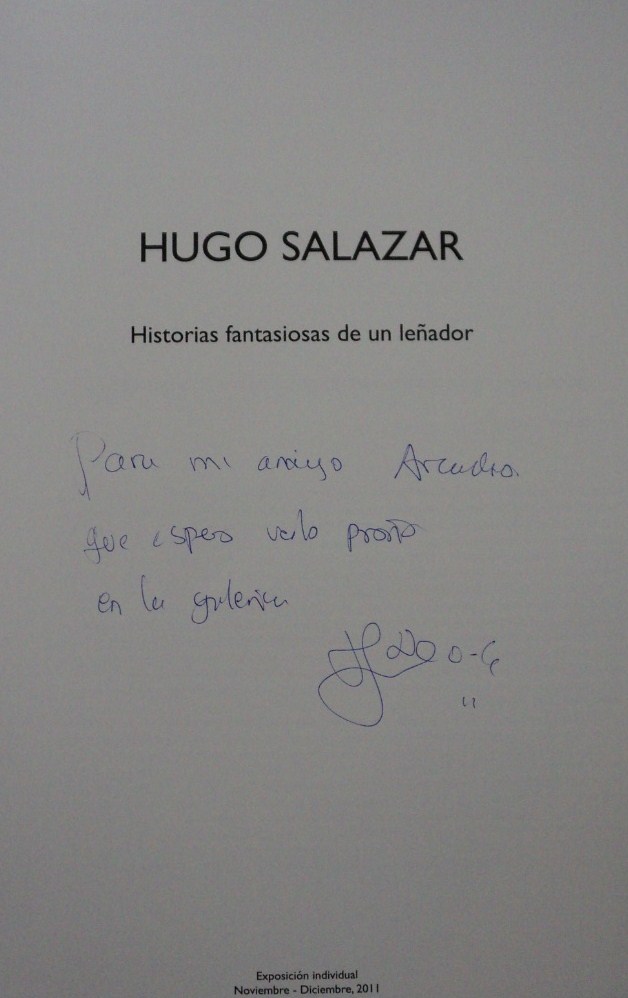 HUGO SALAZAR
Historias fantasiosas de un leñador
Para mi amigo Arcadio.
que espero verlo pronto
en la galeria
11
Exposición individual
Noviembre - Diciembre, 2011